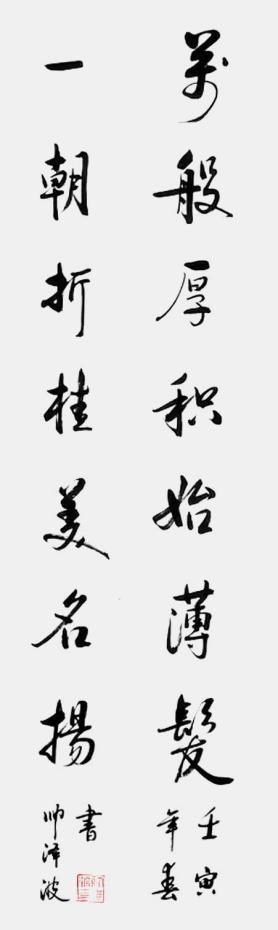 萬般厚积始薄髮
壬寅
年春
一朝折桂美名揚
書
帅泽波